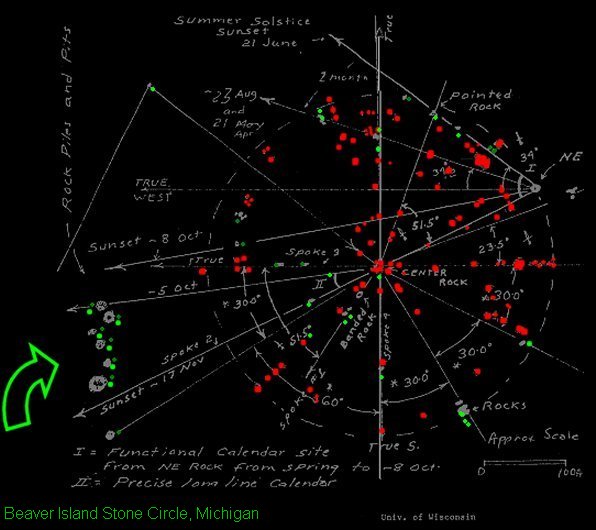 Summer Solstice
Sunset
21 June
True
Rock Piles and Pits
2 month
~23 Aug
and
21 May
Apr
Pointed
Rock
34°
I
NE
TRUE
WEST
51.5°
Sunset ~8 Oct
True
Spoke 3
II
CENTER
ROCK
23.5°
~5 Oct
300°
30.0°
Banded
Rock
Spoke 4
51.5°
Spoke 2
Sunset ~17 Nov
30.0°
* 30.0°
60°
Rocks
True S.
Approx Scale
0
100 ft
I = Functional Calendar site
from NE Rock from spring to ~8 Oct.
II = Precise long line Calendar
Beaver Island Stone Circle, Michigan
Univ. of Wisconsin